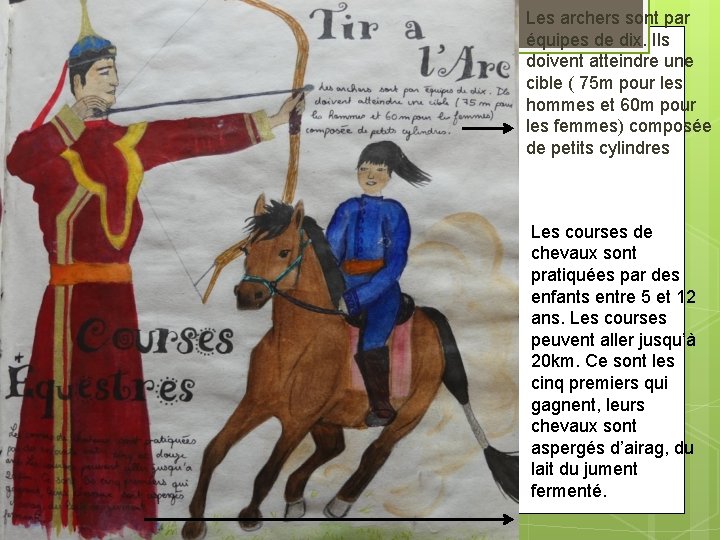 Tir a
l'Arc
Les archers sont par équipes de dix. Ils
doivent atteindre une cible (75 m pour
les hommes et 60 m pour les femmes)
composée de petits cylindres.
Les archers sont par
équipes de dix. Ils
doivent atteindre une
cible ( 75m pour les
hommes et 60m pour
les femmes) composée
de petits cylindres
Courses
Équestres
pratiquées
jusqu'à
cinq premiers qui
sont aspergés
Les courses de
chevaux sont
pratiquées par des
enfants entre 5 et 12
ans. Les courses
peuvent aller jusqu'à
20km. Ce sont les
cinq premiers qui
gagnent, leurs
chevaux sont
aspergés d'airag, du
lait du jument
fermenté.